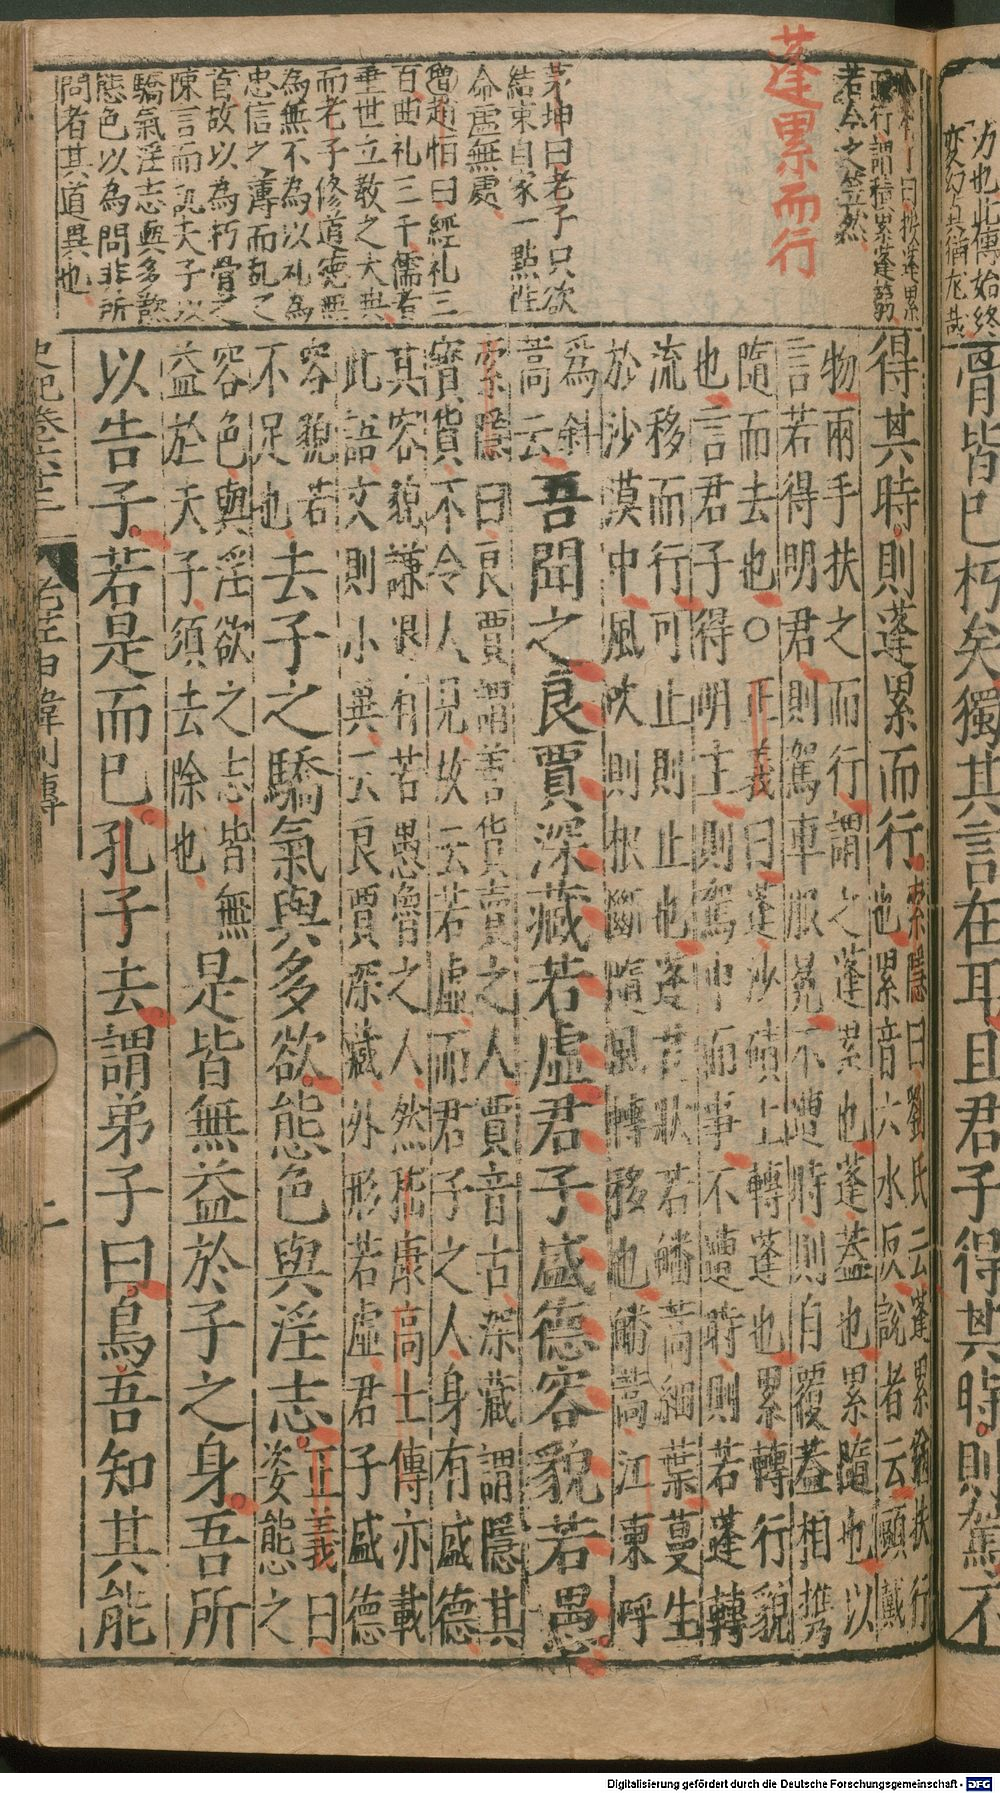 为也此傳始終
變幻真猶龍哉
骨皆已朽矣獨其言在耳且君子得其時則駕不
蓬累而行
曰按蓬累
而行謂積累蓬蒻
若今之笠然
茅坤曰老子只欲
結束自家一點性
命虛無處
曾趙怕曰經礼三
百曲礼三千儒者
垂世立教之大典
而老子修道德無
為無不為以礼為
忠信之薄而亂之
首故以為朽骨之
陳言而訊夫子以
驕氣淫志與多慾
態色以為問非所
問者其道異也
得其時則蓬累而行索隱曰劉氏云蓬累猶扶行
也累音六水反說者云頭戴
物兩手扶之而行謂之蓬累也蓬蓋也累隨也以
言若得明君則駕車服冕不遭時則自覆蓋相攜
隨而去也○正義曰蓬沙磧上轉蓬也累轉行貌
也言君子得明主則駕車而事不遭時則若蓬轉
流移而行可止則止也蓬其狀若皤蒿細葉蔓生
於沙漠中風吹則根斷隨風轉移也皤蒿江東呼
為斜
蒿云
吾聞之良賈深藏若虛君子盛德容貌若愚
索隱曰良賈謂善貨賣之人賈音古深藏謂隱其
寶貨不令人見故云若虛而君子之人身有盛德
其容貌謙退有若愚魯之人然嵇康高士傳亦載
此語文則小異云良賈深藏外形若虛君子盛德
容貌若
不足也
去子之驕氣與多欲態色與淫志正義曰
姿態之
容色與淫欲之志皆無
益於夫子須去除也
是皆無益於子之身吾所
以告子若是而已孔子去謂弟子曰鳥吾知其能
史記卷六十三 老莊申韓列傳 二
Digitalisierung gefördert durch die Deutsche Forschungsgemeinschaft - DFG